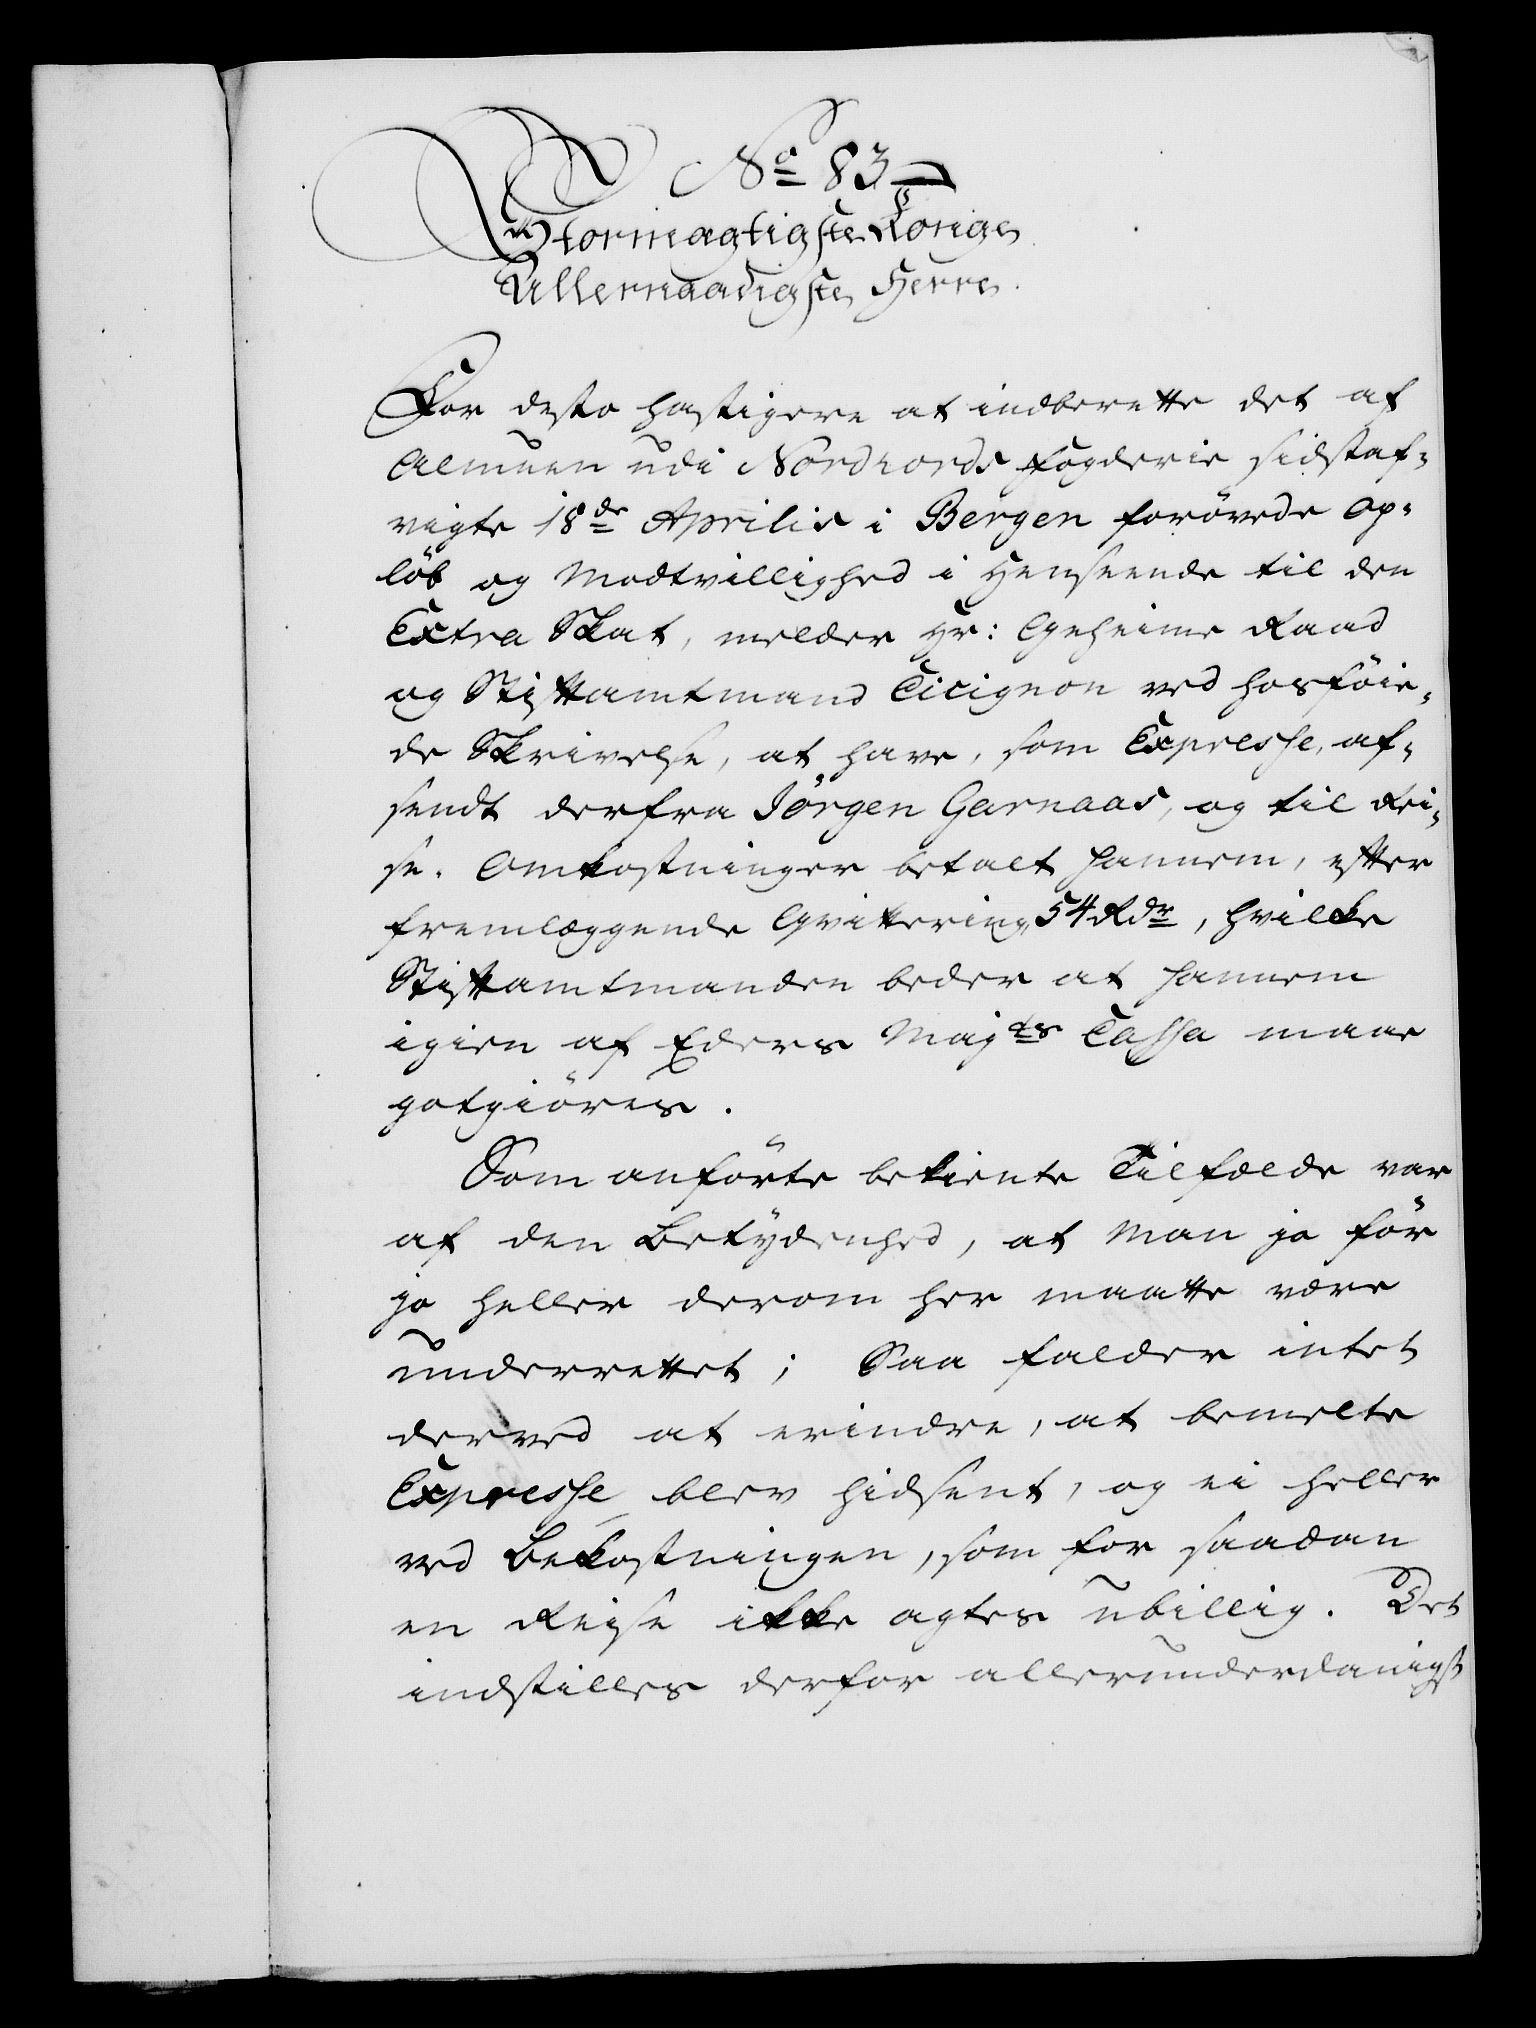 No 83
Stormægtigste Konge
Allernaadigste Herre.
For desto hastigere at indberette det af
Almuen udi Nordhords Fogderie sidstaf-
vigte 18de Aprilis i Bergen forövede Op-
löb og Modtvillighed i Henseende til den
Extra Skat, melder Hr: Geheime Raad
og Stiftamtmand Cicignon ved hosföie-
de Skrivelse, at have, som Expresse, af-
sendt derfra Jörgen Garnaas, og til Rei-
se-Omkostninger betalt hannem, efter
fremlæggende Qvittering, 54 Rdr, hvilke
Stiftamtmanden beder at hannem
igien af Eders Majts Cassa maae
gotgiöres.
Som anförte bekiente Tilfælde var
af den Betÿdenhed, at Man jo för
jo heller derom her maatte være
underrettet; Saa falder intet
derved at erindre, at bemelte
Expresse blev hidsent, og ei heller
ved Bekostningen, som for saadan
en Reise ikke agtes ubillig. Det
indstilles derfor allerunderdanigst